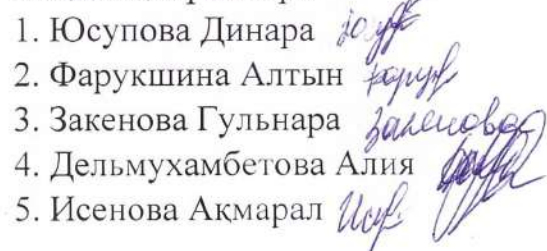 1. Юсупова Динара
2. Фарукшина Алтын
3. Закенова Гульнара Закенова
4. Дельмухамбетова Алия
5. Исенова Ақмарал